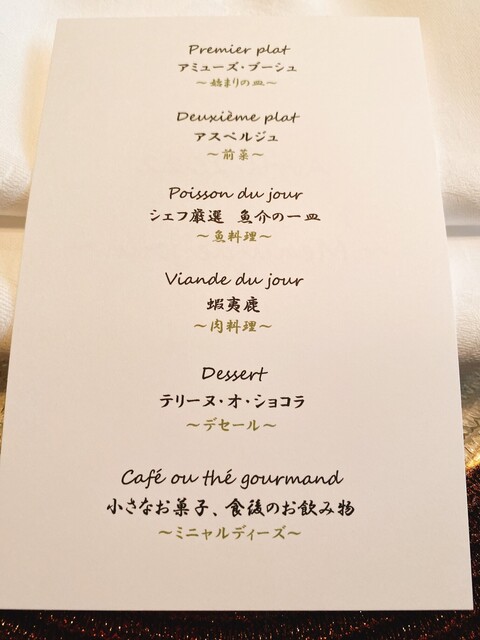 Premier plat
アミューズ・ブーシュ
～始まりの皿～
Deuxième plat
アスペルジュ
～前菜～
Poisson du jour
シェフ厳選 魚介の一皿
～魚料理～
Viande du jour
蝦夷鹿
～肉料理～
Dessert
テリーヌ・オ・ショコラ
～デセール～
Café ou thé gourmand
小さなお菓子、食後のお飲み物
～ミニャルディーズ～